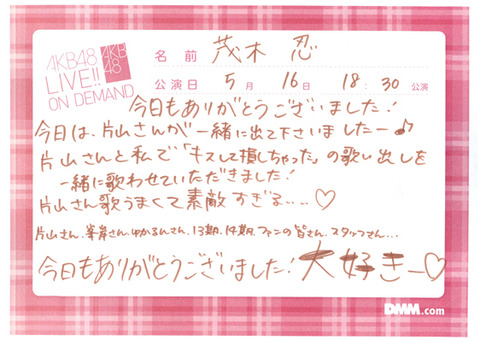 AKB48
LIVE!!
ON DEMAND
AKB
48
名 前 茂木 忍
公演日 5月 16日 18:30 公演
今日もありがとうございました!
今日は、片山さんが一緒に出て下さいましたー♪
片山さんと私で「キスして損しちゃった」の歌い出しを
一緒に歌わせていただきました!
片山さん歌うまくて素敵すぎる....♡
片山さん、峯岸さん、ゆかるんさん、13期、14期、ファンの皆さん、スタッフさん...
今日もありがとうございました! 大好きー♡
DMM.com